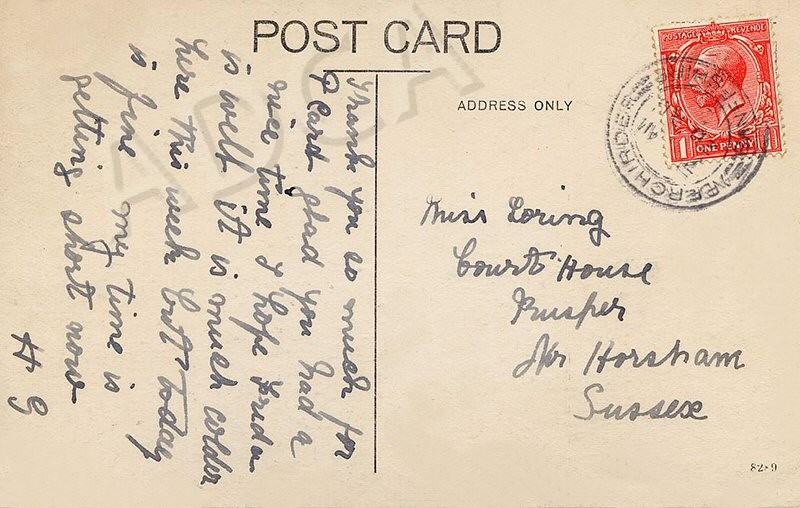 POST CARD
ADDRESS ONLY
Thank you so much for
P Card glad you had a
nice time & hope Frida
is well it is much colder
here this week but today
is fine my time is
getting short now
H G
Miss Loring
Court House
Rusper
Nr Horsham
Sussex
POSTAGE REVENUE
1 ONE PENNY 1
ABERCHIRDER
AM
ADCA
8279